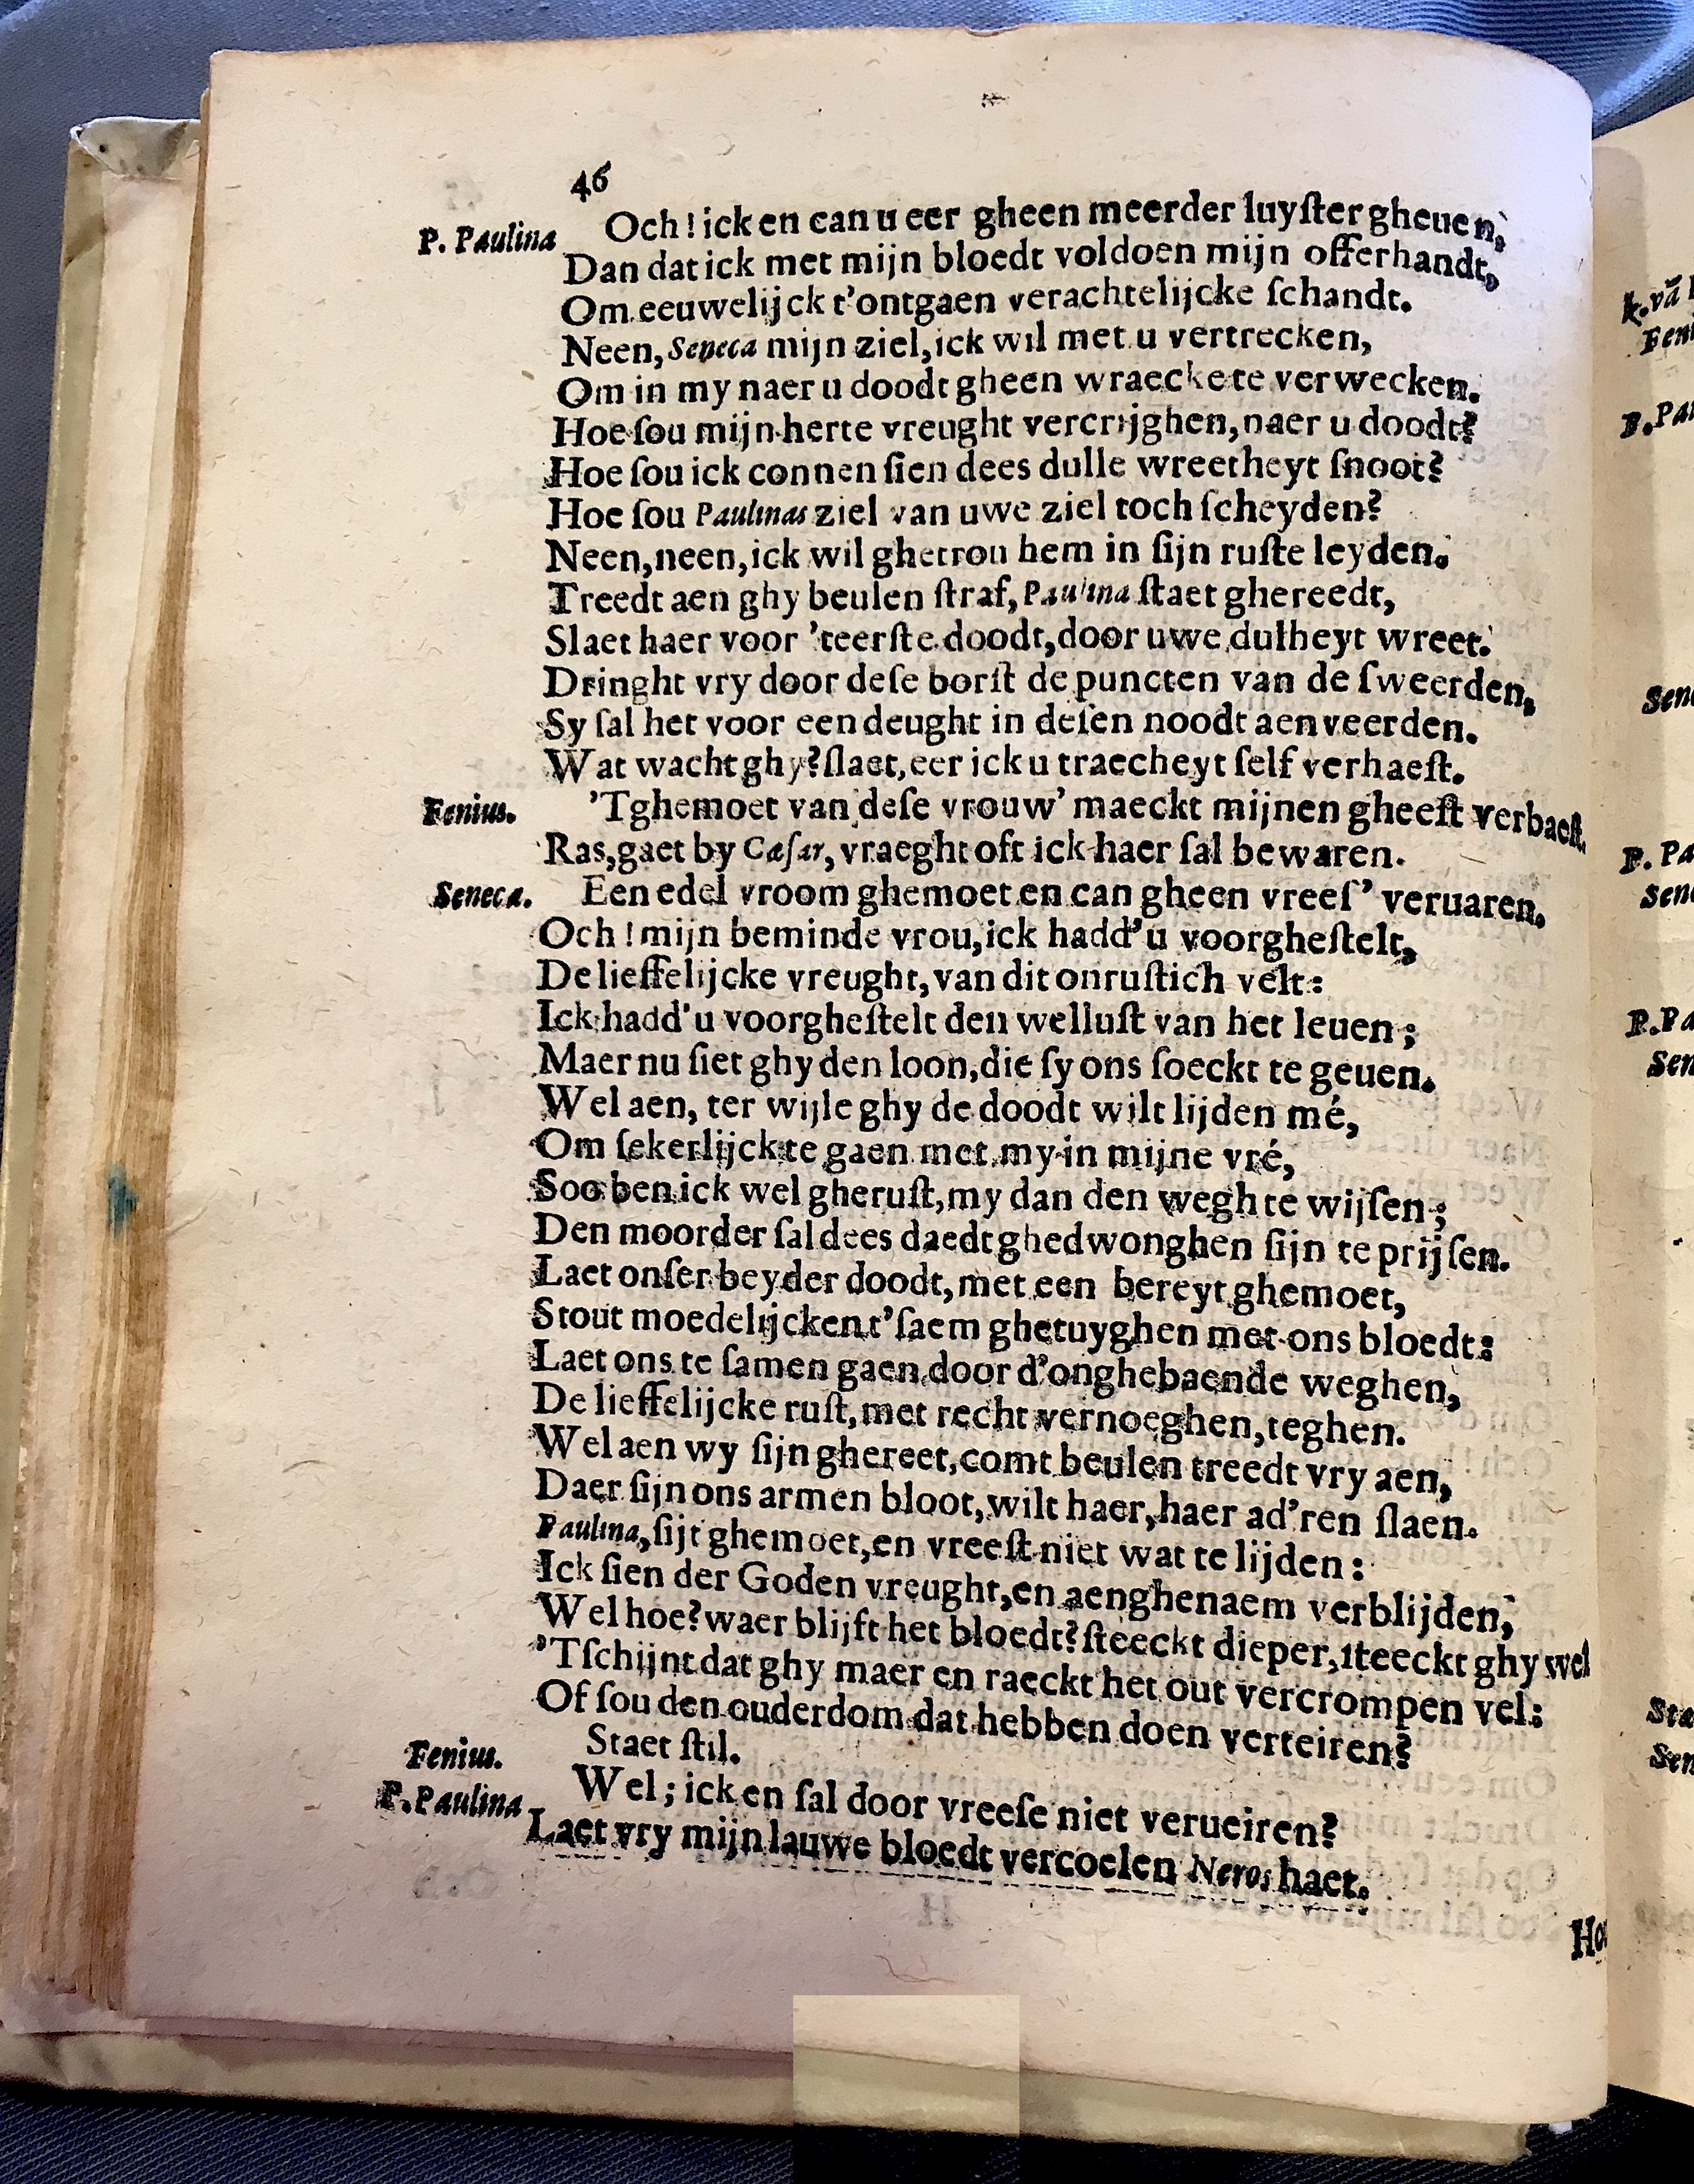 46
P. Paulina Och! ick en can u eer gheen meerder luyſter gheuen,
Dan dat ick met mijn bloedt voldoen mijn offerhandt,
Om eeuwelijck t'ontgaen verachtelijcke ſchandt.
Neen, Seneca mijn ziel, ick wil met u vertrecken,
Om in my naer u doodt gheen wraecke te verwecken.
Hoe ſou mijn herte vreught vercrijghen, naer u doodt?
Hoe ſou ick connen ſien dees dulle wreetheyt ſnoot?
Hoe ſou Paulinas ziel van uwe ziel toch ſcheyden?
Neen, neen, ick wil ghetrou hem in ſijn ruſte leyden.
Treedt aen ghy beulen ſtraf, Paulina ſtaet ghereedt,
Slaet haer voor 'teerſte doodt, door uwe dulheyt wreet.
Dringht vry door deſe borſt de puncten van de ſweerden,
Sy ſal het voor een deught in deſen noodt aenveerden.
Wat wacht ghy? ſlaet, eer ick u traecheyt ſelf verhaeſt.
Fenius. 'Tghemoet van deſe vrouw' maeckt mijnen gheeſt verbaeſt.
Ras, gaet by Cæſar, vraeght oft ick haer ſal bewaren.
Seneca. Een edel vroom ghemoet en can gheen vreeſ' veruaren.
Och! mijn beminde vrou, ick hadd' u voorgheſtelt,
De lieffelijcke vreught, van dit onruſtich velt:
Ick hadd' u voorgheſtelt den welluſt van het leuen;
Maer nu ſiet ghy den loon, die ſy ons ſoeckt te geuen.
Wel aen, ter wijle ghy de doodt wilt lijden mé,
Om ſekerlijck te gaen met my in mijne vré,
Soo ben ick wel gheruſt, my dan den wegh te wijſen;
Den moorder ſal dees daedt ghedwonghen ſijn te prijſen.
Laet onſer beyder doodt, met een bereyt ghemoet,
Stout moedelijcken t'ſaem ghetuyghen met ons bloedt:
Laet ons te ſamen gaen door d'onghebaende weghen,
De lieffelijcke ruſt, met recht vernoeghen, teghen.
Wel aen wy ſijn ghereet, comt beulen treedt vry aen,
Daer ſijn ons armen bloot, wilt haer, haer ad'ren ſlaen.
Paulina, ſijt ghemoet, en vreeſt niet wat te lijden:
Ick ſien der Goden vreught, en aenghenaem verblijden,
Wel hoe? waer blijft het bloedt? ſteeckt dieper, ſteeckt ghy wel
'Tſchijnt dat ghy maer en raeckt het out vercrompen vel:
Of ſou den ouderdom dat hebben doen verteiren?
Fenius. Staet ſtil.
P. Paulina Wel; ick en ſal door vreeſe niet verueiren?
Laet vry mijn lauwe bloedt vercoelen Neros haet.
k. vā
Feni
P. Pau
Sene
P. Pa
Sene
P. Pa
Sen
Sta
Sen